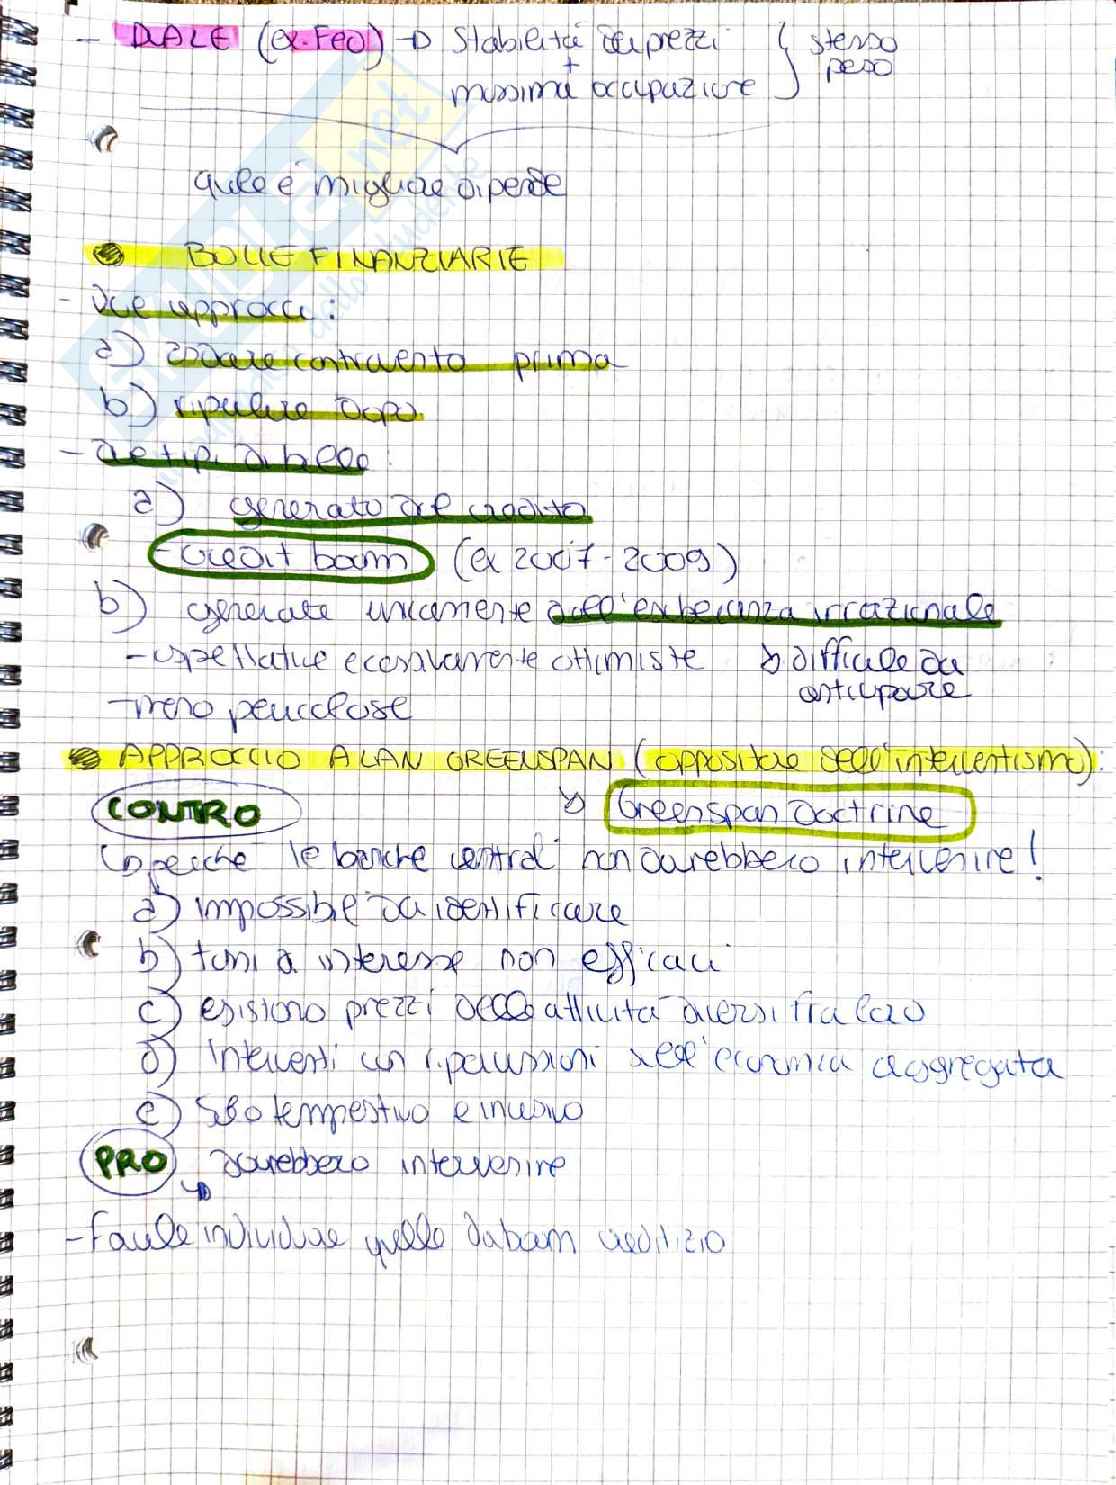 - DUALE (ex. Fed) → Stabilità dei prezzi } stesso
+ peso
massima occupazione
quale è migliore dipende
BOLLE FINANZIARIE
- Due approcci:
a) andare controvento prima
b) ripulire dopo
- due tipi di bolle:
a) generato dal credito
- credit boom (ex 2007-2009)
b) generate unicamente dall'esuberanza irrazionale
- aspettative eccessivamente ottimiste ↳ difficile da
anticipare
- meno pericolose
APPROCCIO ALAN GREENSPAN (oppositore dell'interventismo):
CONTRO ↳ Greenspan Doctrine
↳ perché le banche centrali non dovrebbero intervenire!
a) impossibile da identificare
b) tassi d'interesse non efficaci
c) esistono prezzi delle attività diversi fra loro
d) Interventi con ripercussioni sull'economia aggregata
e) Solo tempestivo e incisivo
PRO dovrebbero intervenire
↳
- Facile individuare quelle da boom creditizio
SKUOLA.net